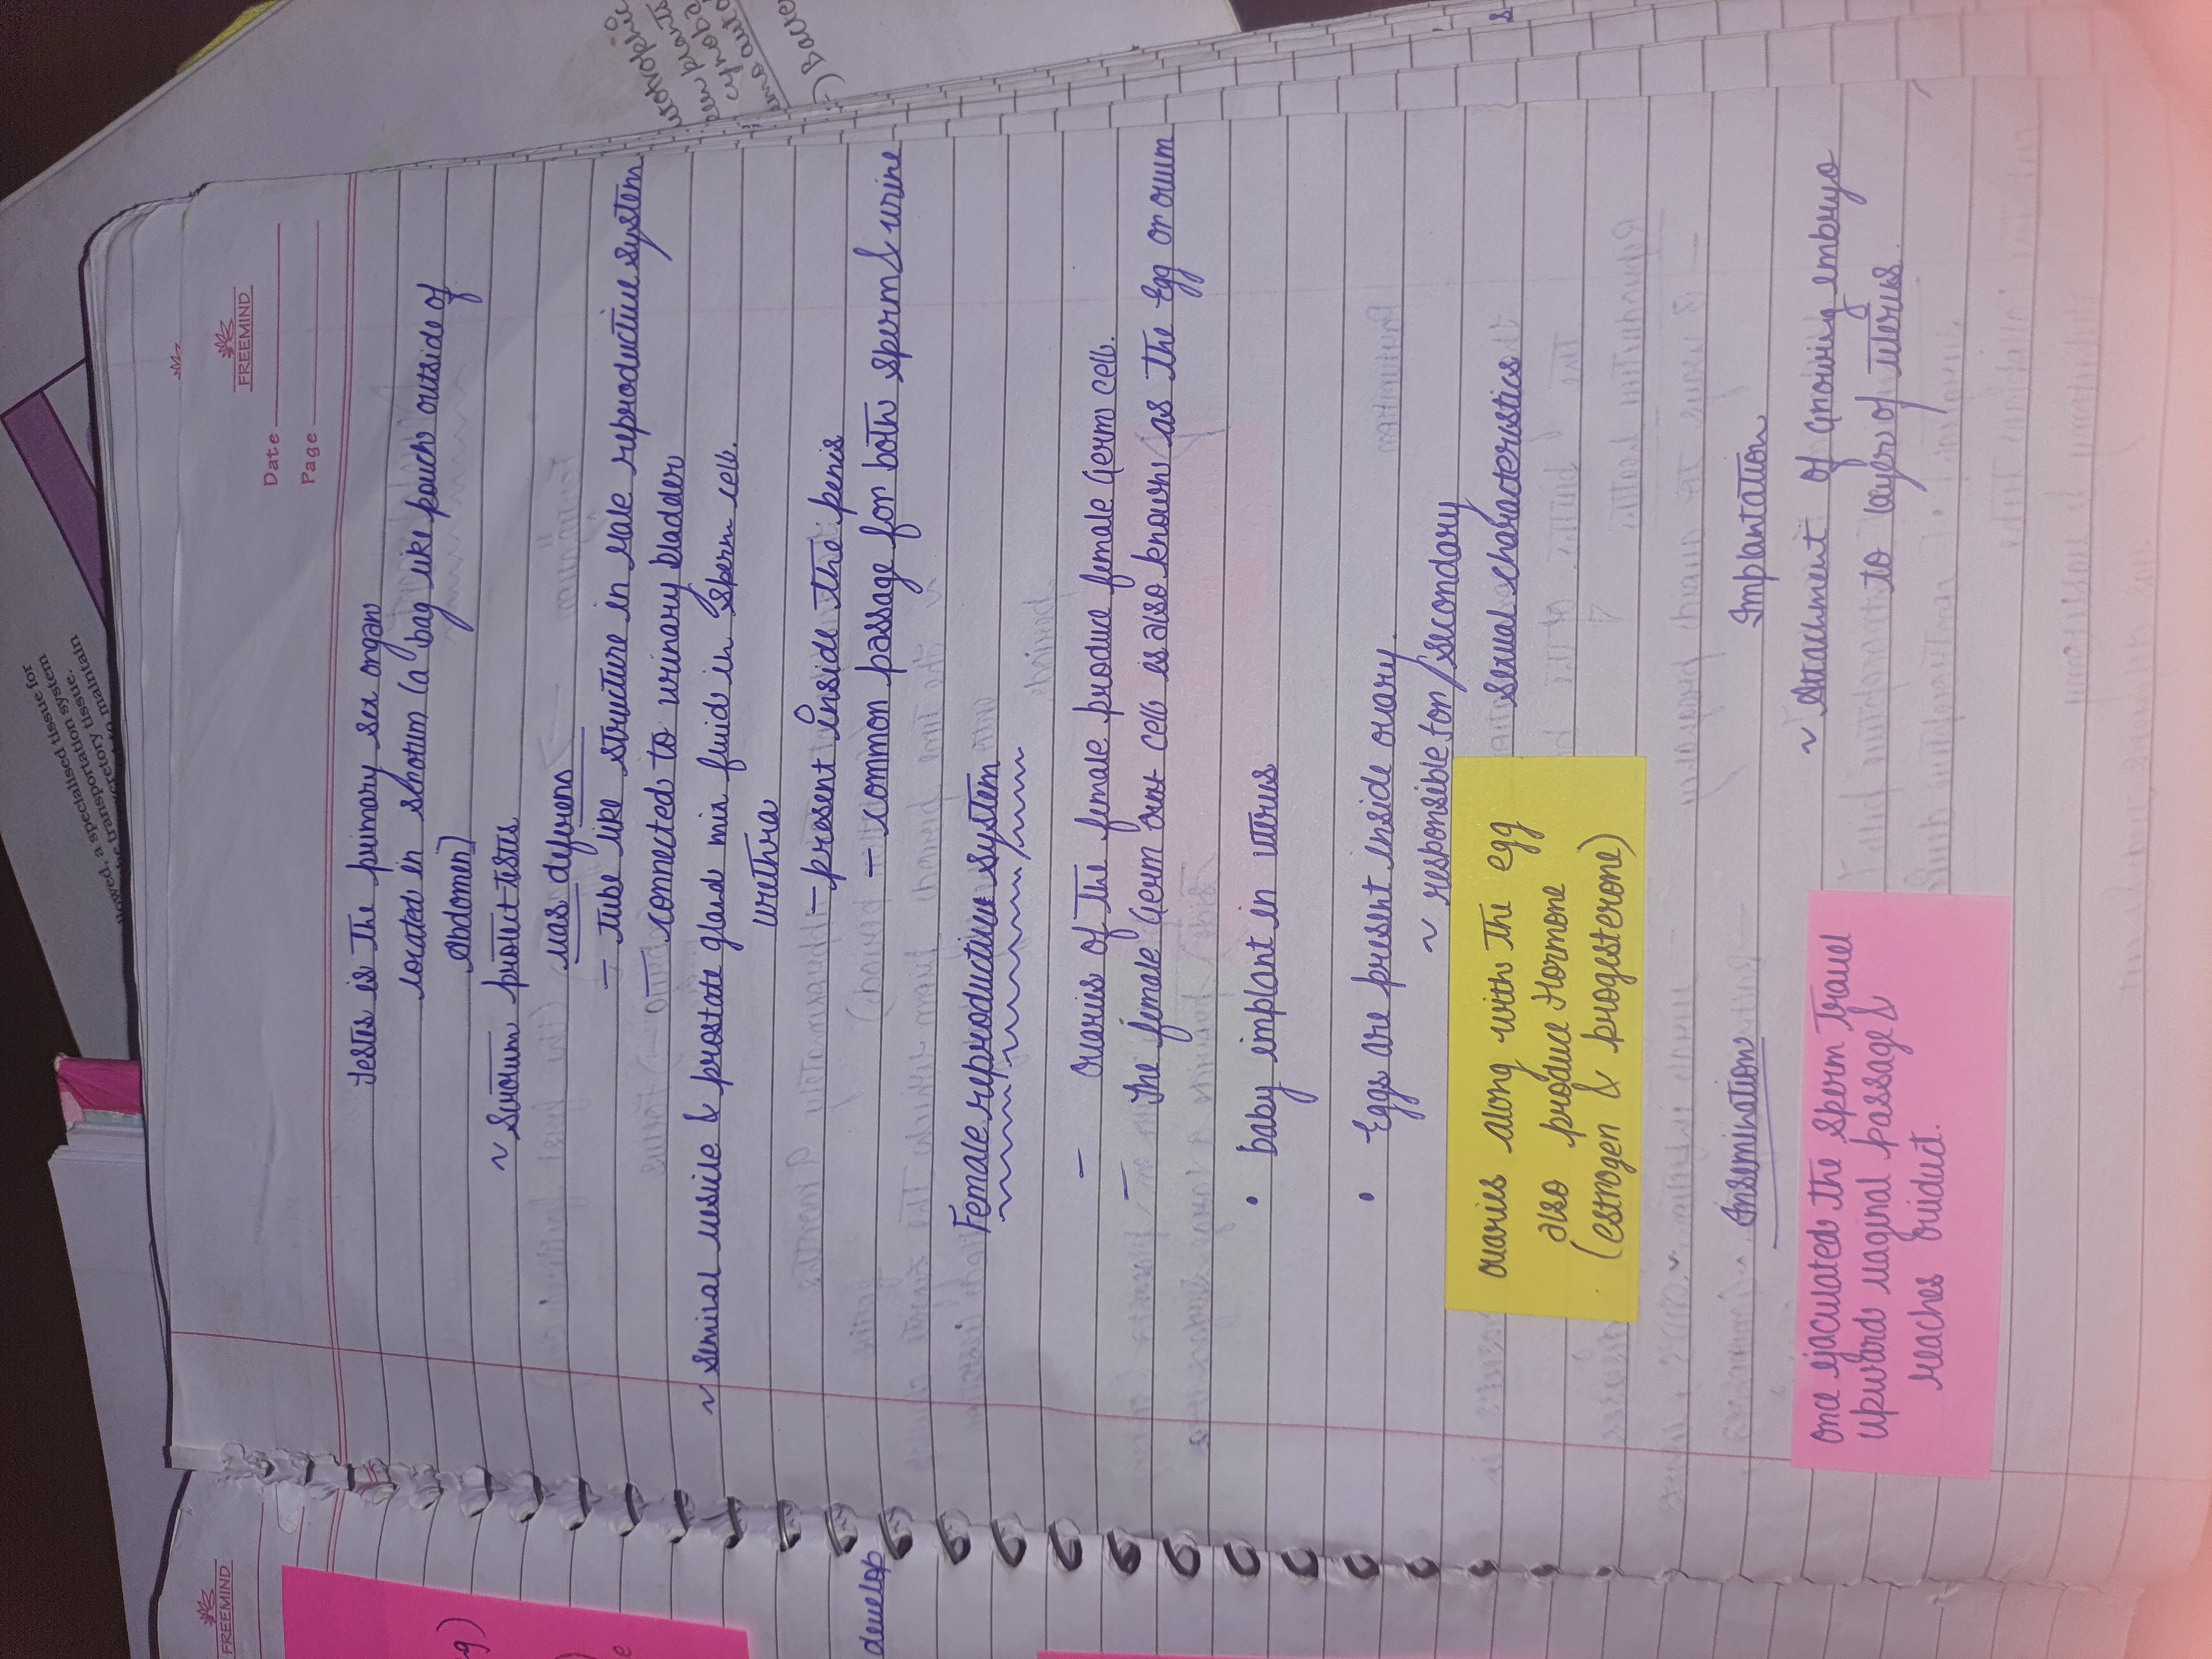 llowed, a specialised tissue for
he transportation system
xcretory tissue.
to maintain
FREEMIND
FREEMIND
Date
Page
Testes is the primary sex organ
located in scrotum (a bag like pouch outside of
Abdomen]
~ Scrotum protect testes
vas deferens
- tube like structure in Male reproductive system
connected to urinary bladder
~ Seminal vesicle & prostate gland mix fluid in sperm cell.
Urethra
- present inside the penis
- common passage for both sperm & urine
develop
Female reproductive system
- Ovaries of the female produce female Germ cell.
- The female Germ cell is also known as the Egg or ovum
• baby implant in uterus
• Eggs are present inside ovary.
~ responsible for secondary
sexual characteristics
ovaries along with the egg
also produce Hormone
(estrogen & progesterone)
Insemination
once ejaculated the sperm travel
upward vaginal passage &
reaches oviduct.
Implantation
~ Attachment of Growing embryo
to layer of uterus.
utotrophic
plants
cynoba
Bacte